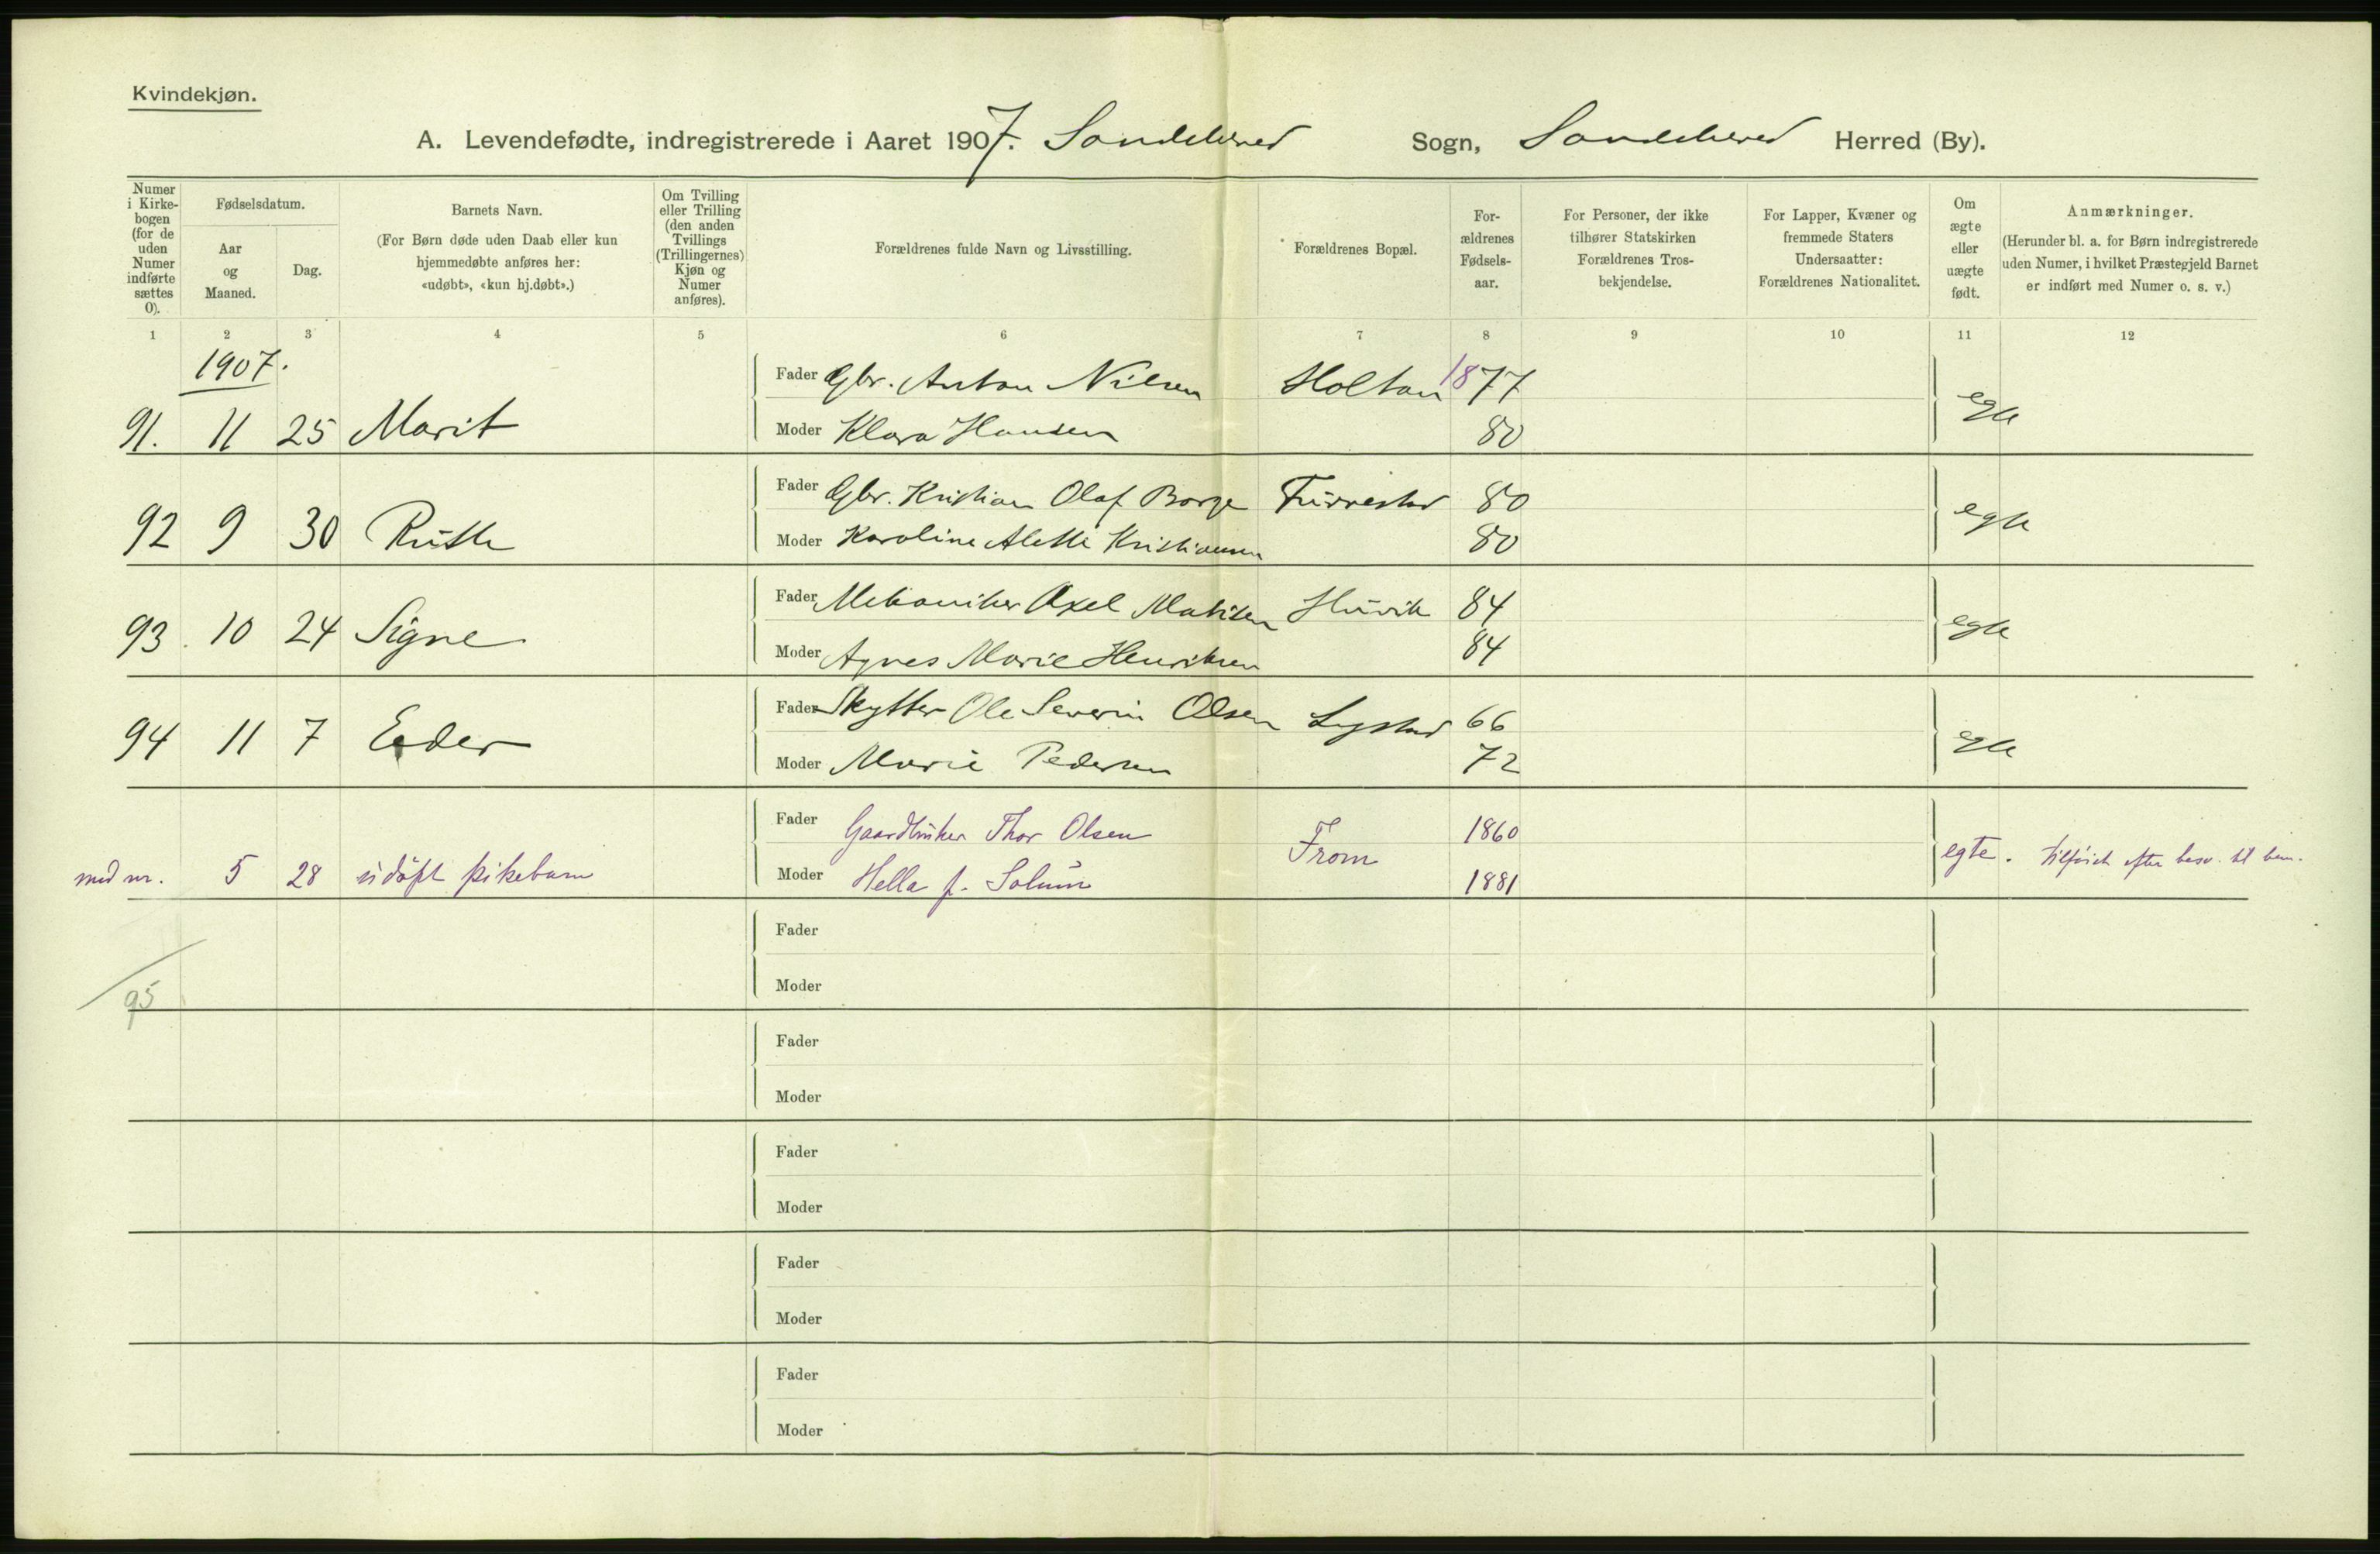 Kvindekjøn.
A. Levendefødte, indregistrerede i Aaret 1907. Sandeherred Sogn, Sandeherred Herred (By).
Numer i Kirkebogen (for de uden Numer indførte sættes 0).
Fødselsdatum.
Aar og Maaned.
Dag.
Barnets Navn.
(For Børn døde uden Daab eller kun hjemmedøbte anføres her: «udøbt», «kun hj.døbt».)
Om Tvilling eller Trilling (den anden Tvillings (Trillingernes) Kjøn og Numer anføres).
Forældrenes fulde Navn og Livsstilling.
Forældrenes Bopæl.
For-
ældrenes
Fødsels-
aar.
For Personer, der ikke
tilhører Statskirken
Forældrenes Tros-
bekjendelse.
For Lapper, Kvæner og
fremmede Staters
Undersaatter:
Forældrenes Nationalitet.
Om
ægte
eller
uægte
født.
Anmærkninger.
(Herunder bl. a. for Børn indregistrerede
uden Numer, i hvilket Præstegjeld Barnet
er indført med Numer o. s. v.)
1 2 3 4 5 6 7 8 9 10 11 12
1907.
Fader Gbr. Anton Nilsen Holtan 1877
91. 11 25 Marit Moder Klara Hansen 80 egte
Fader Gbr. Kristian Olaf Borge Furrestad 80
92 9 30 Ruth Moder Karoline Alette Kristiansen 80 egte
Fader Mekaniker Axel Mathisen Huvik 84
93. 10 24 Signe Moder Agnes Marie Henriksen 84 egte
Fader Skytter Ole Severin Olsen 66
94 11 7 Moder Marie Pedersen 72 egte
Fader Gaardbruker Thor Olsen From 1860
28 udöpt pikebarn Moder Hella f. Solum 1881 egte.
5
Fader
Moder
95
Fader
Moder
Fader
Moder
Fader
Moder
Fader
Moder